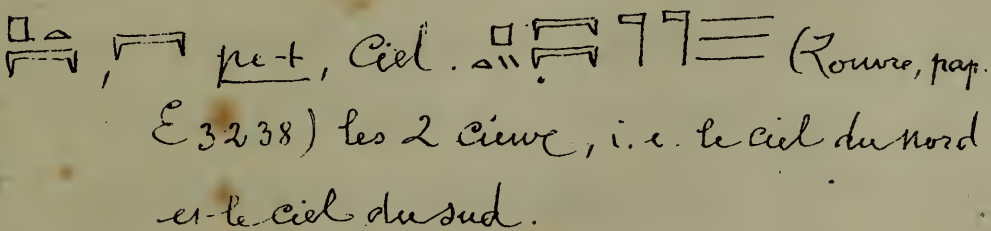 𓊪𓏏𓇯, 𓇯 pe-t, Ciel. 𓊪𓏏𓏭𓇯𓇯𓊹𓊹𓈗 (Louvre, pap.
E 3238) les 2 cieux, i.e. le ciel du nord
et le ciel du sud.